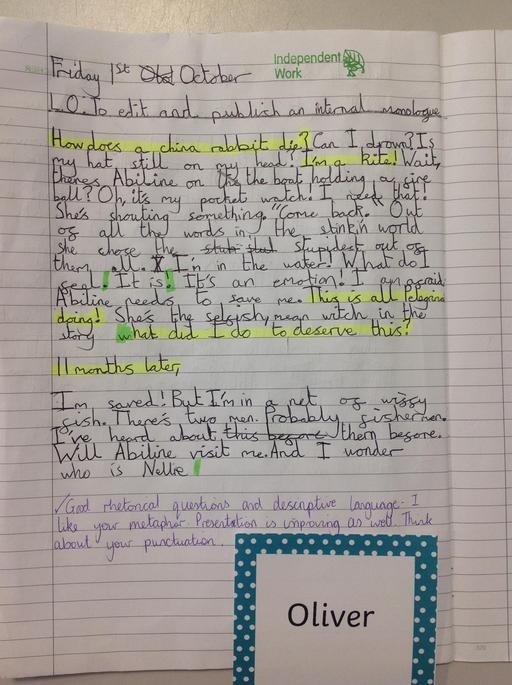 Friday 1st Oct October
Independent
Work
L.O. To edit and publish an internal monologue
How does a china rabbit die? Can I drown? Is
my hat still on my head? I'm a kite! Wait,
theres Abiline on the the boat holding a fire
ball? Oh, it's my pocket watch! I need that!
She's shouting something, "Come back. Out
of all the words in the stink'n world
she chose the stupidest out of
them all. I I'm in the water! What do I
feal! It is! It's an emotion! I am afraid
Abiline needs to save me. This is all Pelegrina
doing! She's the selfish, mean witch in the
story what did I do to deserve this?
11 months later,
I'm saved! But I'm in a net of wissy
fish. There's two men. Probably fishermen.
I've heard about this before them before.
Will Abiline visit me. And I wonder
who is Nellie
✓Good rhetorical questions and descriptive language - I
like your metaphor. Presentation is improving as well. Think
about your punctuation.
Oliver